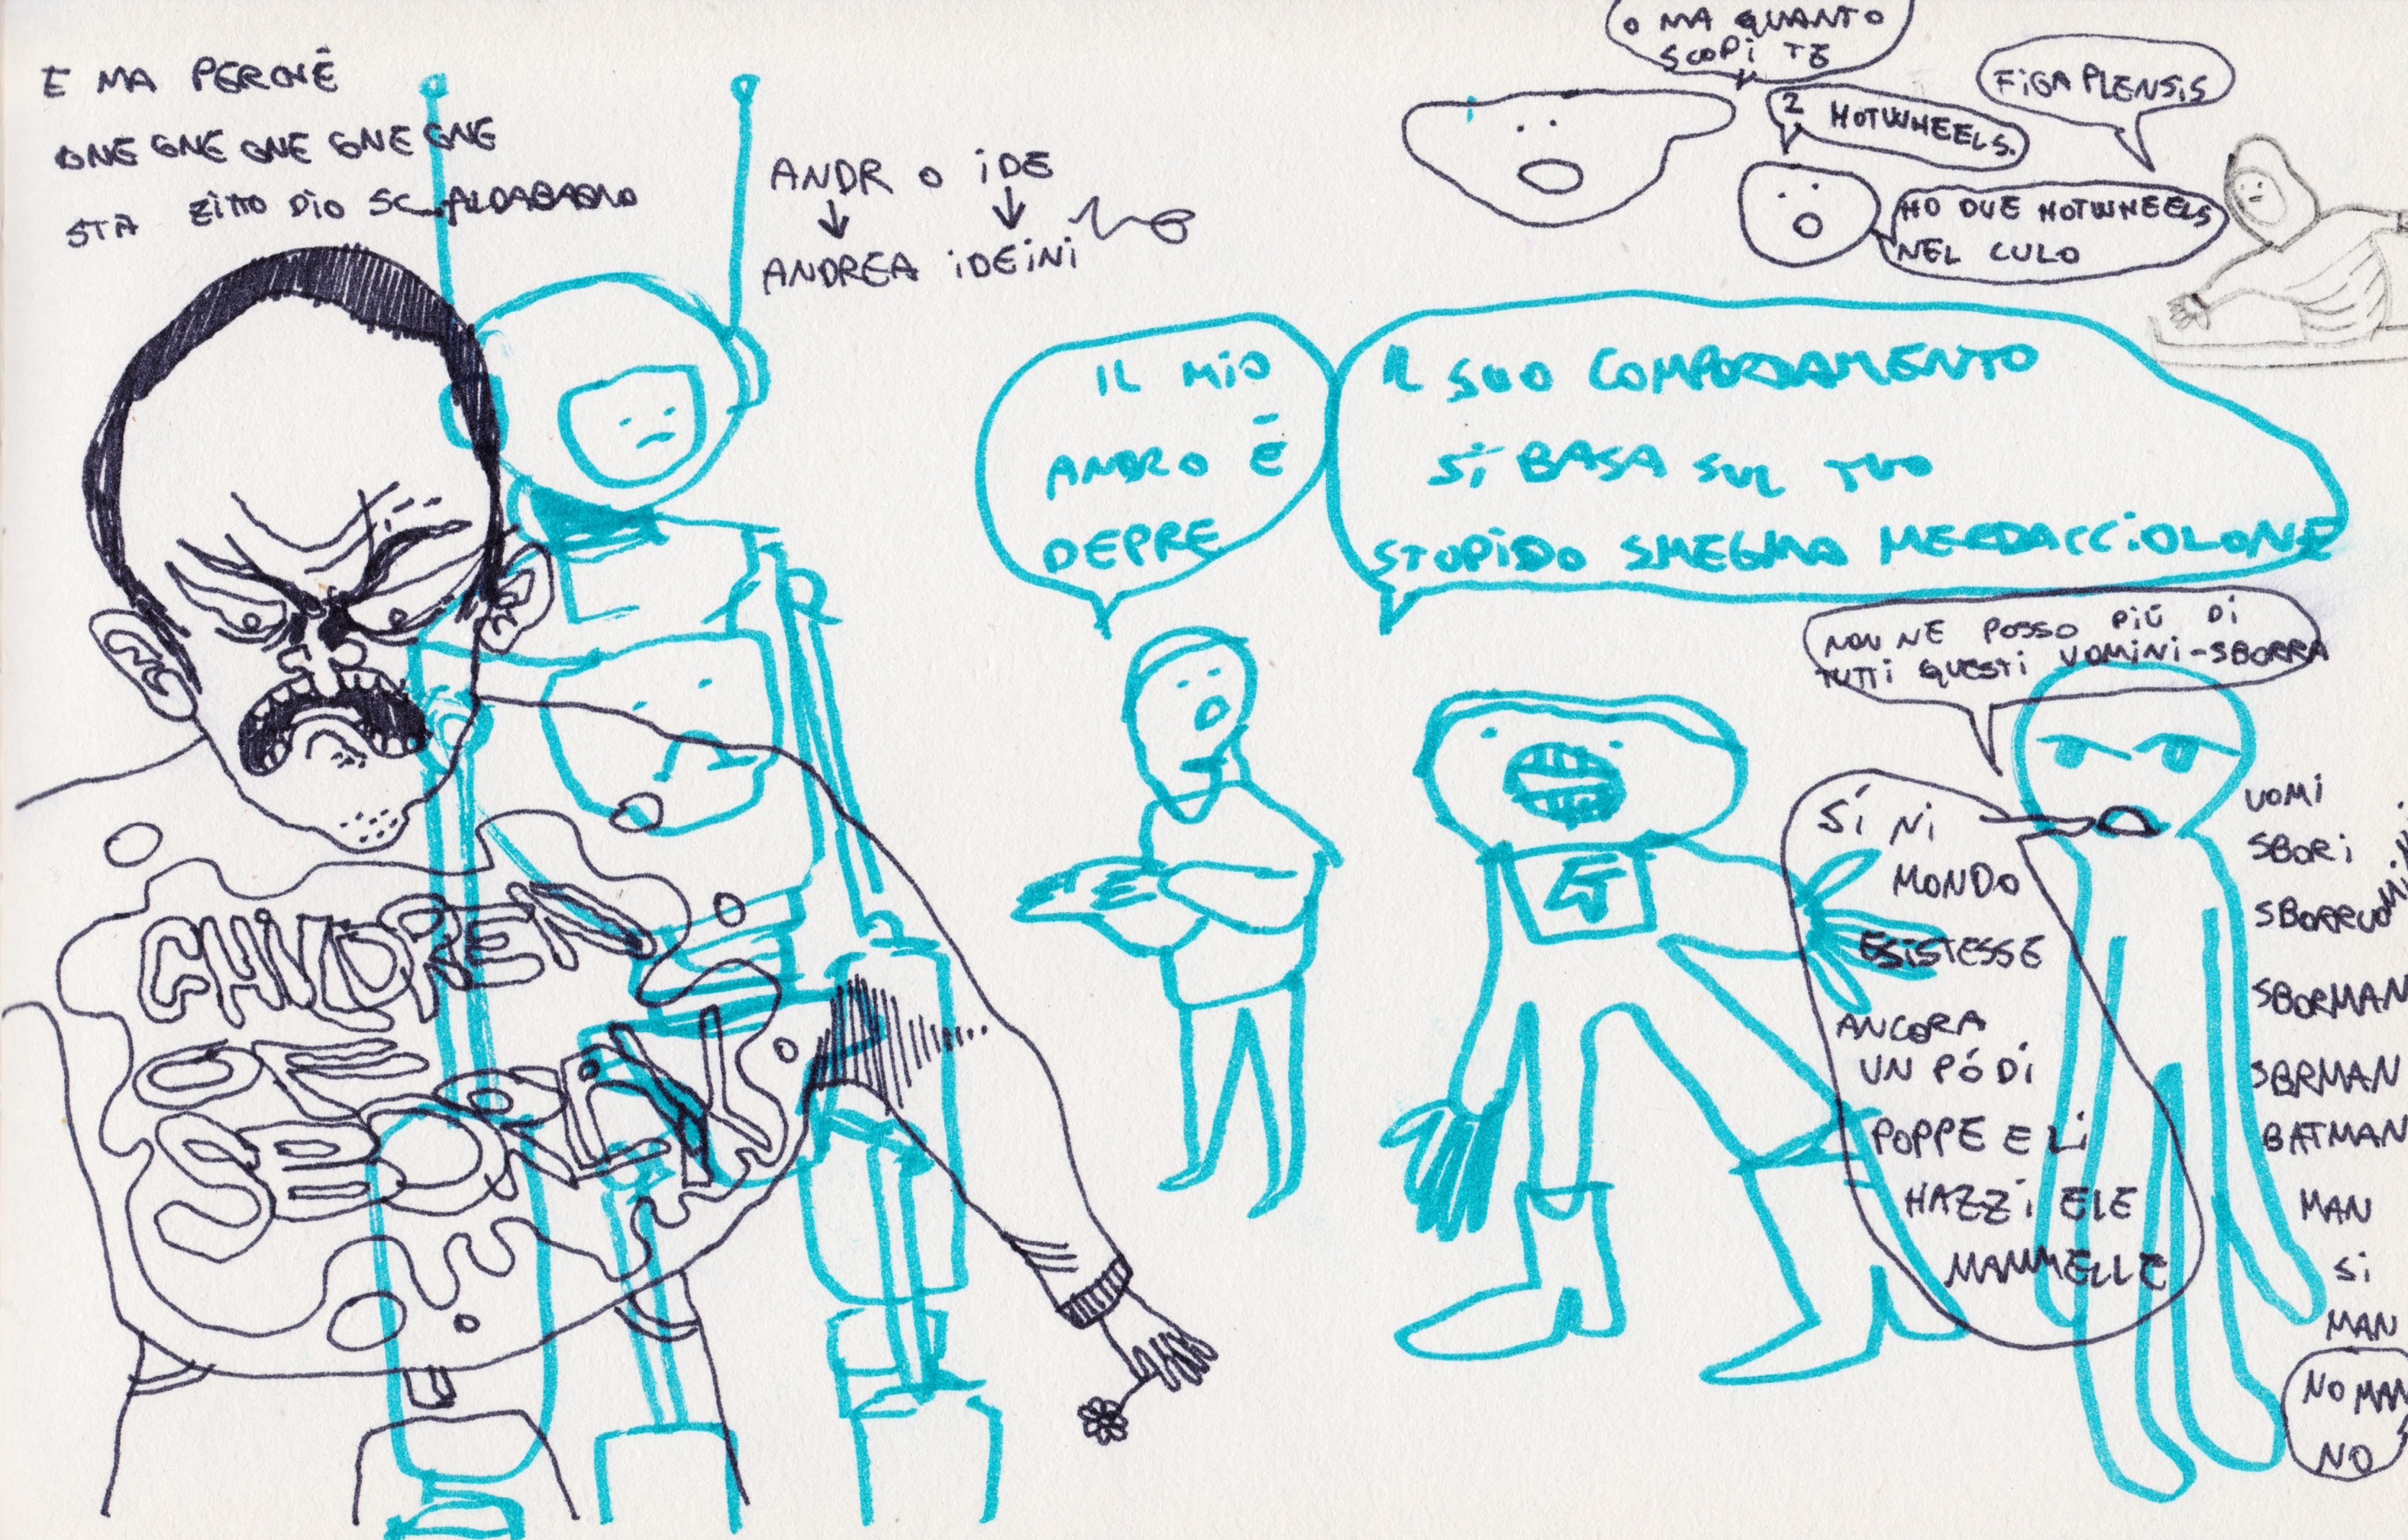 E MA PERCHÈ
GNE GNE GNE GNE GNE
STA ZITTO DIO SCALDABAGNO
ANDR O IDE
ANDREA IDEINI
O MA QUANTO
SCOPI TE
2 HOTWHEELS.
FIGA PLENSIS
HO DUE HOTWHEELS
NEL CULO
IL MIO
ANDRO È
DEPRE
IL SUO COMPORDAMENTO
SI BASA SUL TUO
STUPIDO SMEGMA MERDACCIOLONE
NON NE POSSO PIÙ DI
TUTTI QUESTI UOMINI-SBORRA
SÍ NI
MONDO
ESISTESSE
ANCORA
UN PÓ DI
POPPE E LI
HAZZI E LE
MAMMELLE
UOMI
SBORI
SBORRUOMINI
SBORMAN
SBRMAN
BATMAN
MAN
SI
MAN
NO MAN
NO
CHILDREN
OF
SBORRA